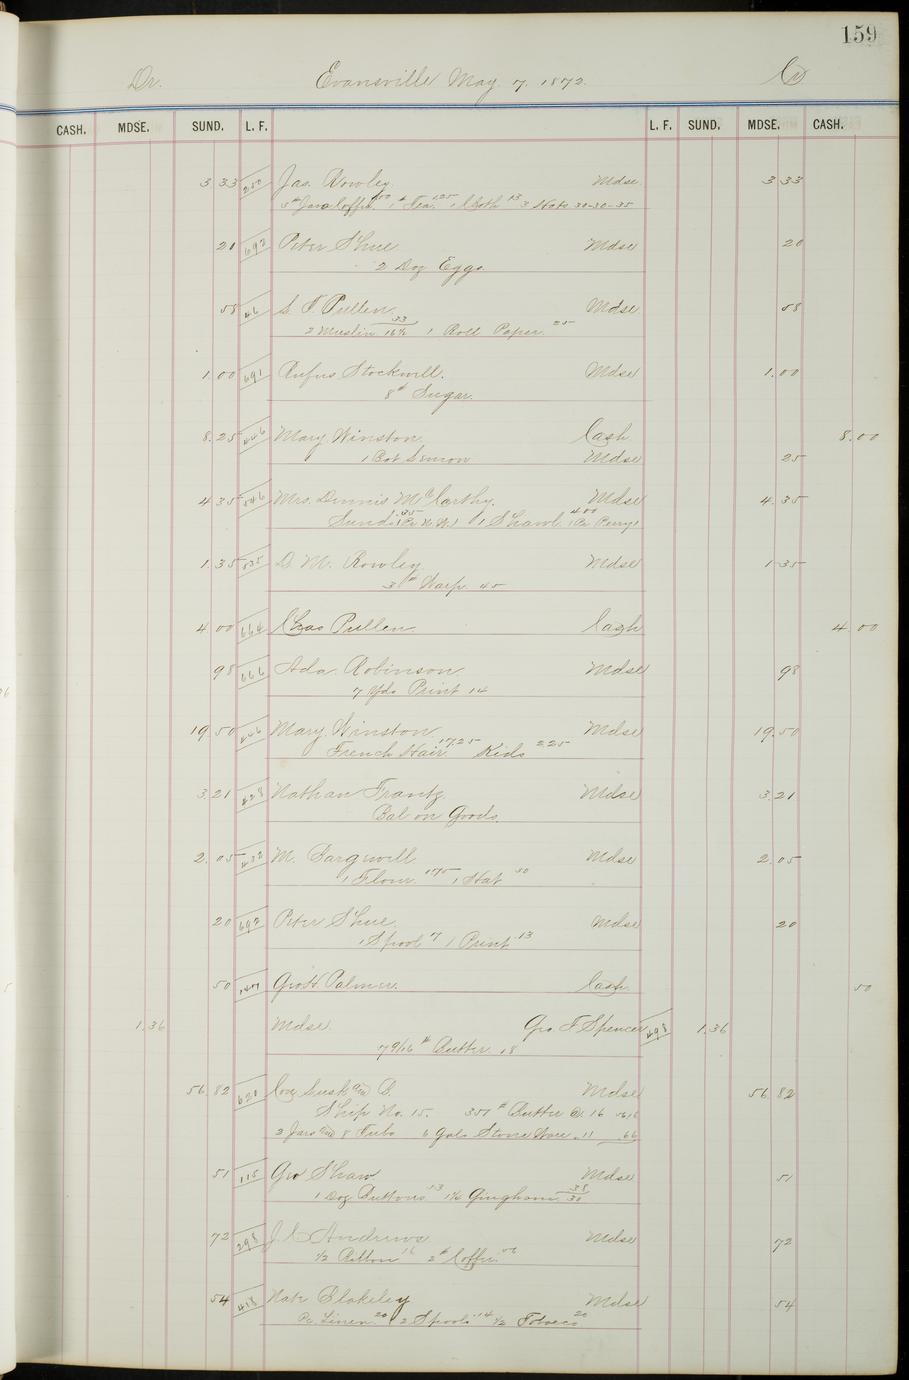 159
Dr. Evansville May 7, 1872. Cr
CASH. MDSE. SUND. L. F. L. F. SUND. MDSE. CASH.
3 33 250 Jas. Rowley Mdse 3 33
5# Java Coffee 1# Tea 1.25 1 Cloth 13 3 Hats 30-30-35
20 692 Peter Shue Mdse 20
2 Doz Eggs
58 46 S. F. Pullen Mdse 58
2 Muslin 16½ 33 1 Roll Paper 25
1.00 691 Rufus Stockwell. Mdse 1.00
8# Sugar
8.25 446 Mary Winston Cash 8.00
1 Bot Lemon Mdse 25
4 35 546 Mrs. Dennis McCarthy. Mdse 4.35
Sund .35 1 Shawl 4.00 (Pr Perry)
1.35 535 D. M. Rowley Mdse 1 35
3# Warp 45
4 00 664 Chas Pullen Cash 4 00
98 666 Ada Robinson Mdse 98
7 Yds Print 14
19.50 446 Mary Winston Mdse 19.50
French Hair 17.25 Kids 2.25
3.21 428 Nathan Frantz Mdse 3.21
Bal on Goods.
2.05 432 M. Bargwell Mdse 2.05
1 Flour 1.75 1 Hat 30
20 692 Peter Shue. Mdse 20
1 Spool 7 1 Print 13
50 147 Geo H. Palmer. Cash 50
1.36 Mdse Geo F Spencer 498 1.36
7 9/16# Butter 18
56.82 620 Coy Lusk and B. Mdse 56 82
Ship No. 15. 351# Butter @ 16 56.16
2 Jars and 8 Tubs 6 Gals Stone Ware .11 .66
51 115 Geo Shaw Mdse 51
1 Doz Buttons 13 1¼ Gingham 38
72 298 J. C. Andrews Mdse 72
½ Ribbon 16 2# Coffee 56
54 418 Nate Blakeley Mdse 54
Pc. Linen 20 2 Spools 14 ½ Tobacco 20